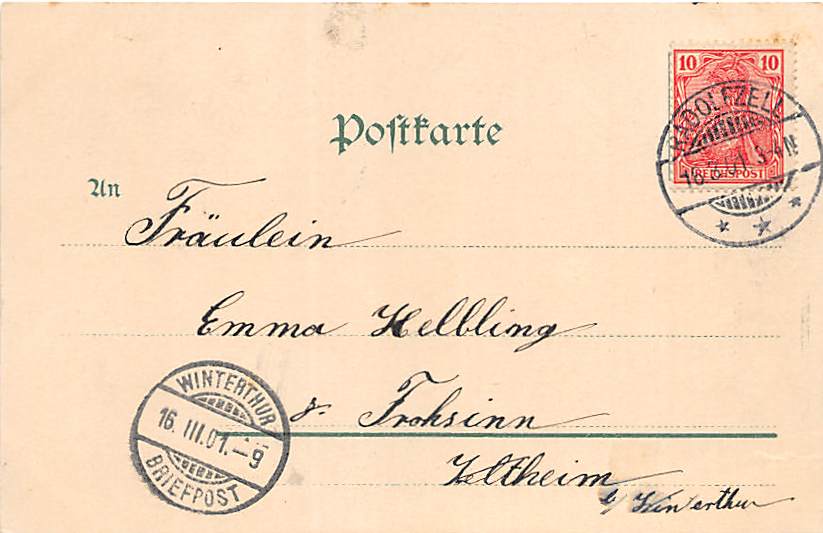 Postkarte
10 10
REICHSPOST
RADOLFZELL
16.3.01 3-4N
An
Fräulein
Emma Helbling
z. Frohsinn
Veltheim
b/ Winterthur
WINTERTHUR
16. III. 01. – 9
BRIEFPOST